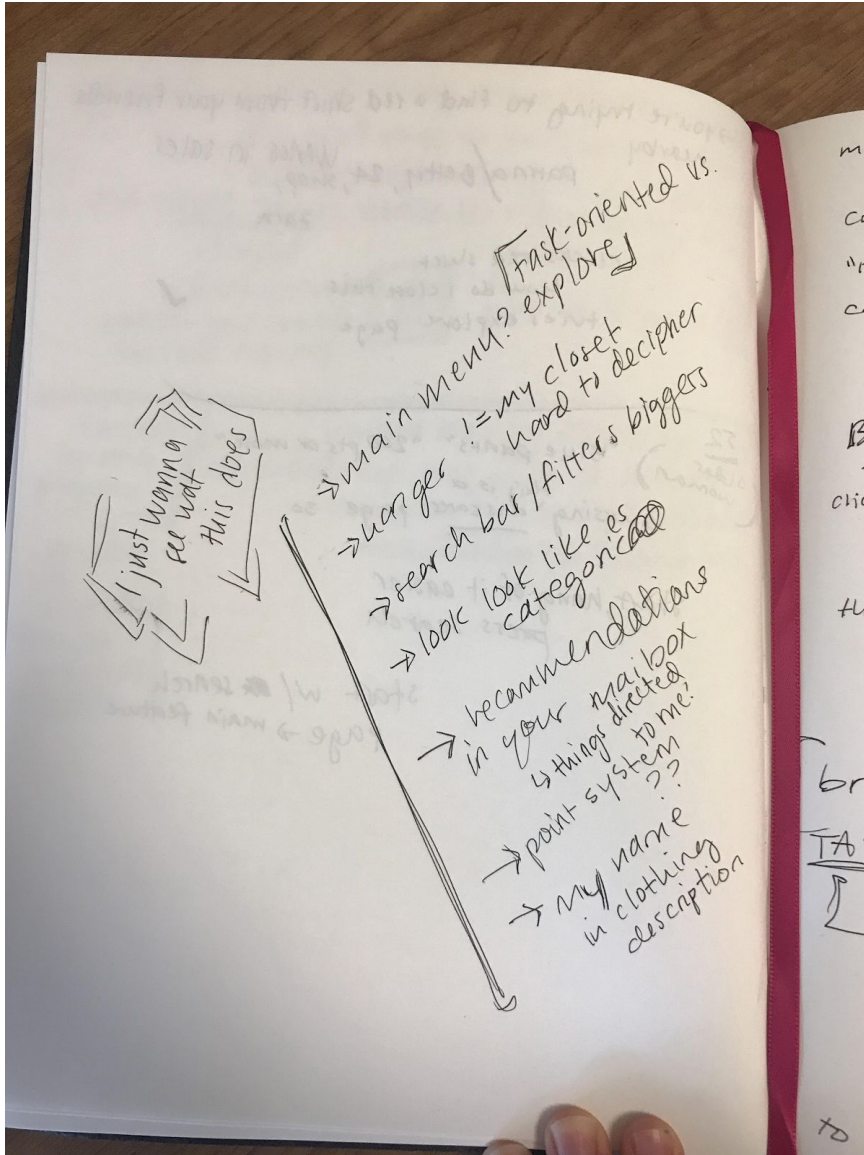 "I just wanna
see wat
this does"
[task-oriented vs.
explore]
→ main menu?
→ hanger != my closet
hard to decipher
→ search bar / filters biggers
→ look look like as
categorical
→ recommendations
in your mailbox
↳ things directed
to me?
→ point system
??
→ my name
in clothing
description
m
co
clic
br
TA
to